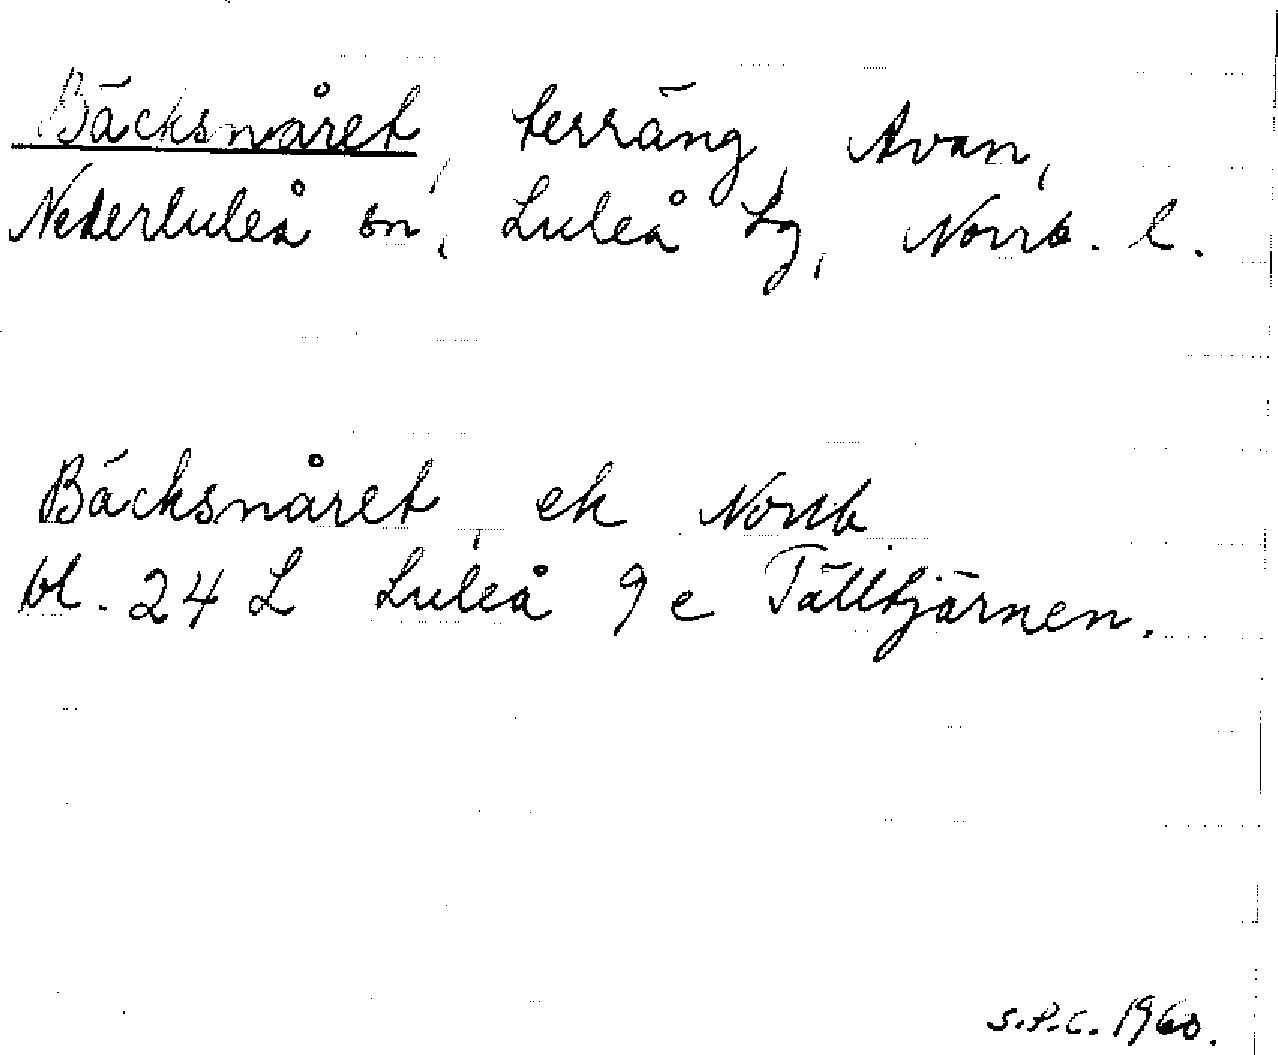 Bäcksnåret, terräng, Avan,
Nederluleå sn, Luleå tg, Norrb. l.
Bäcksnåret, ek Norrb
bl. 24 L Luleå 9 e Tälltjärnen.
S.P.C. 1960.